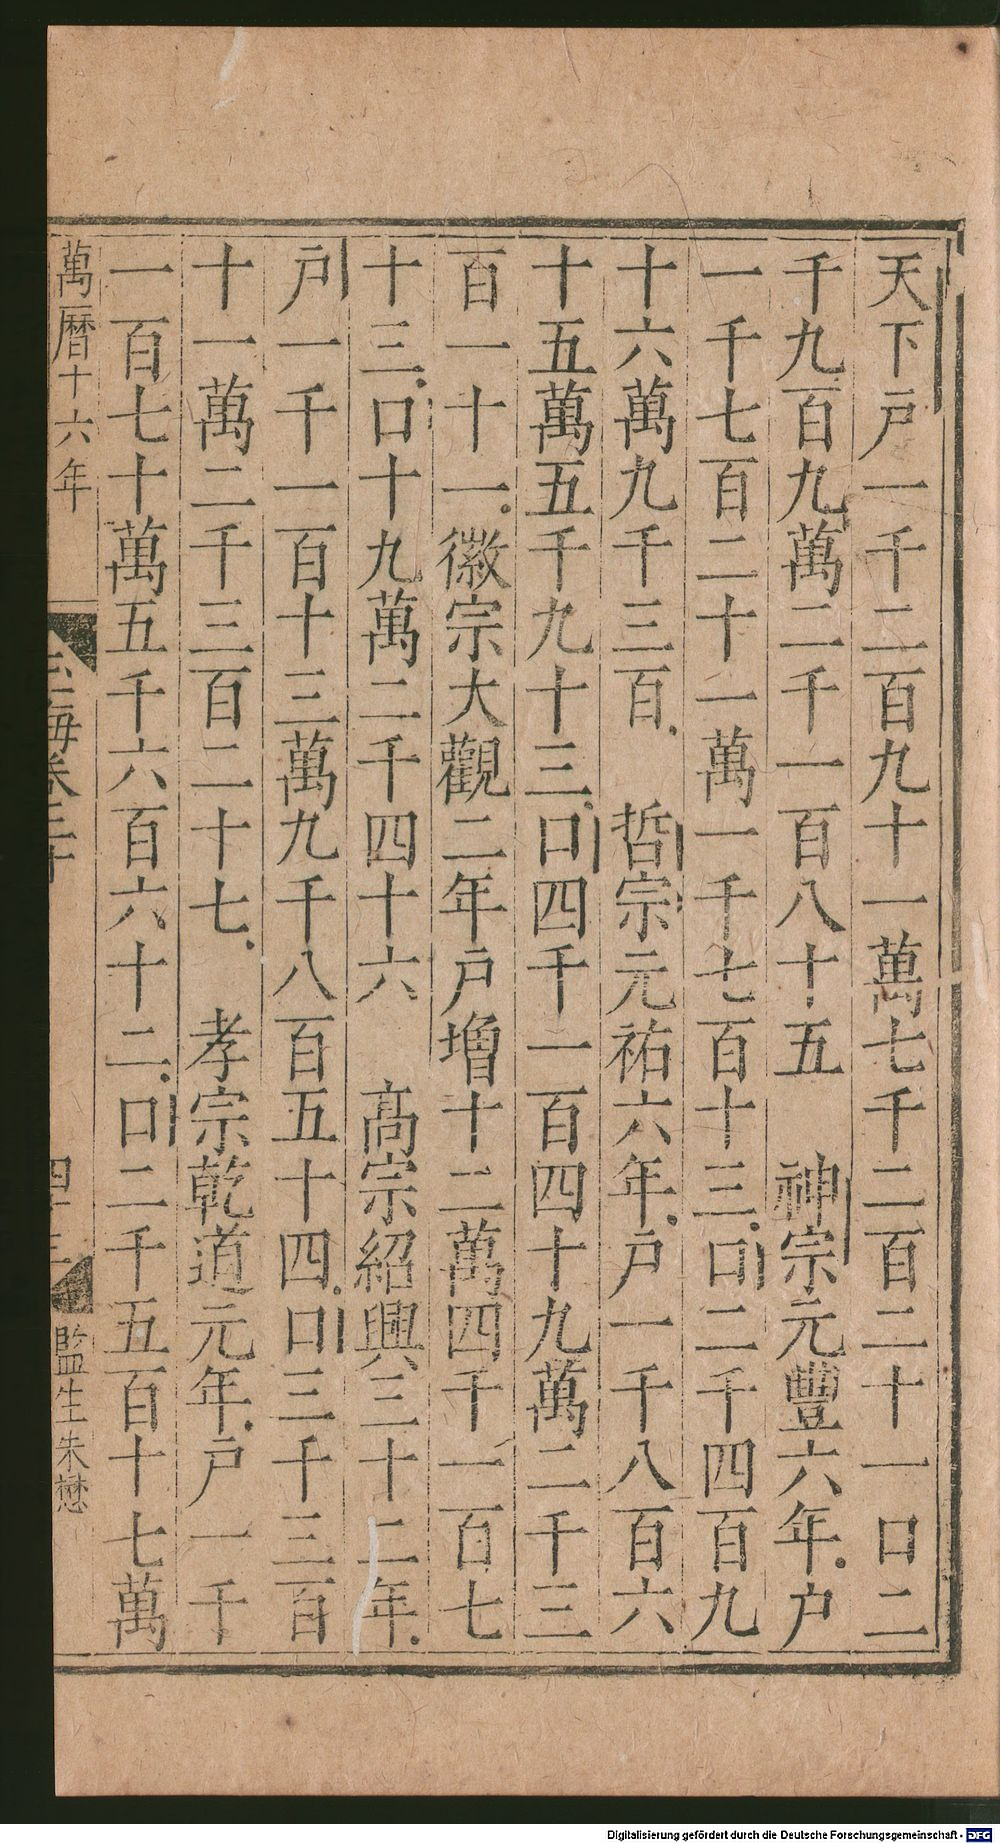 天下戸一千二百九十一萬七千二百二十一口二
千九百九萬二千一百八十五　神宗元豐六年戸
一千七百二十一萬一千七百十三口二千四百九
十六萬九千三百　哲宗元祐六年戸一千八百六
十五萬五千九十三口四千一百四十九萬二千三
百一十一徽宗大觀二年戸增十二萬四千一百七
十三口十九萬二千四十六　高宗紹興三十二年
戸一千一百十三萬九千八百五十四口三千三百
十一萬二千三百二十七　孝宗乾道元年戸一千
一百七十萬五千六百六十二口二千五百十七萬
萬曆十六年
海卷二十
監生朱懋
Digitalisierung gefördert durch die Deutsche Forschungsgemeinschaft - DFG